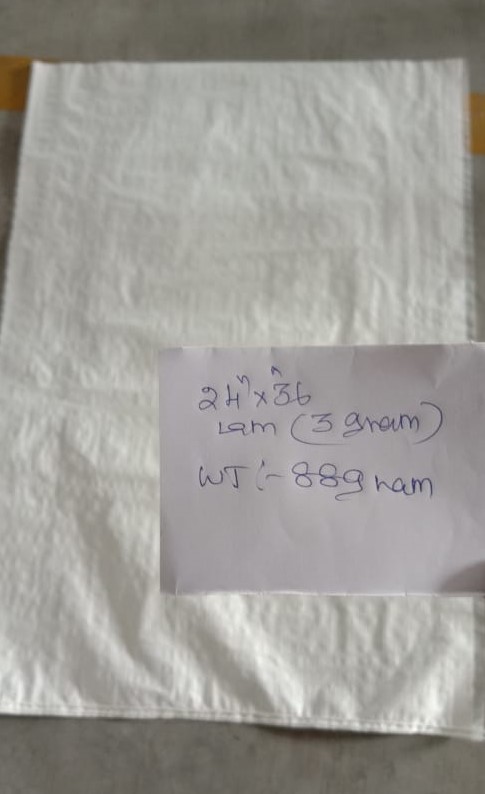 24"x36
Lam (3 gram)
WT :- 88gram